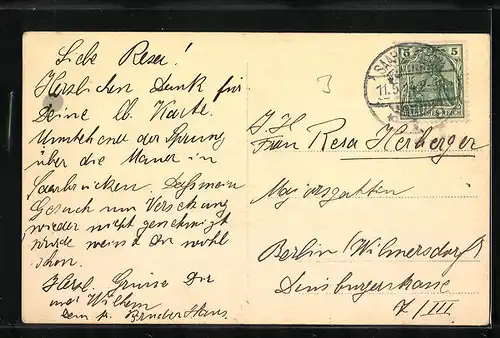 Liebe Resa!
Herzlichen Dank für
Deine lb. Karte.
Umstehend der Sprung
über die Mauer in
Saarbrücken. Dass mein
Gesuch um Versetzung
wieder nicht genehmigt
wurde weisst Du wohl
schon.
Herzl. Grüsse Dir
und Wilhelm
Dein Bruder Hans
5 5
SAAR
11.5
I. H.
Frau Resa Herberger
Majorsgattin
Berlin (Wilmersdorf)
Duisburgerstrasse
7/III